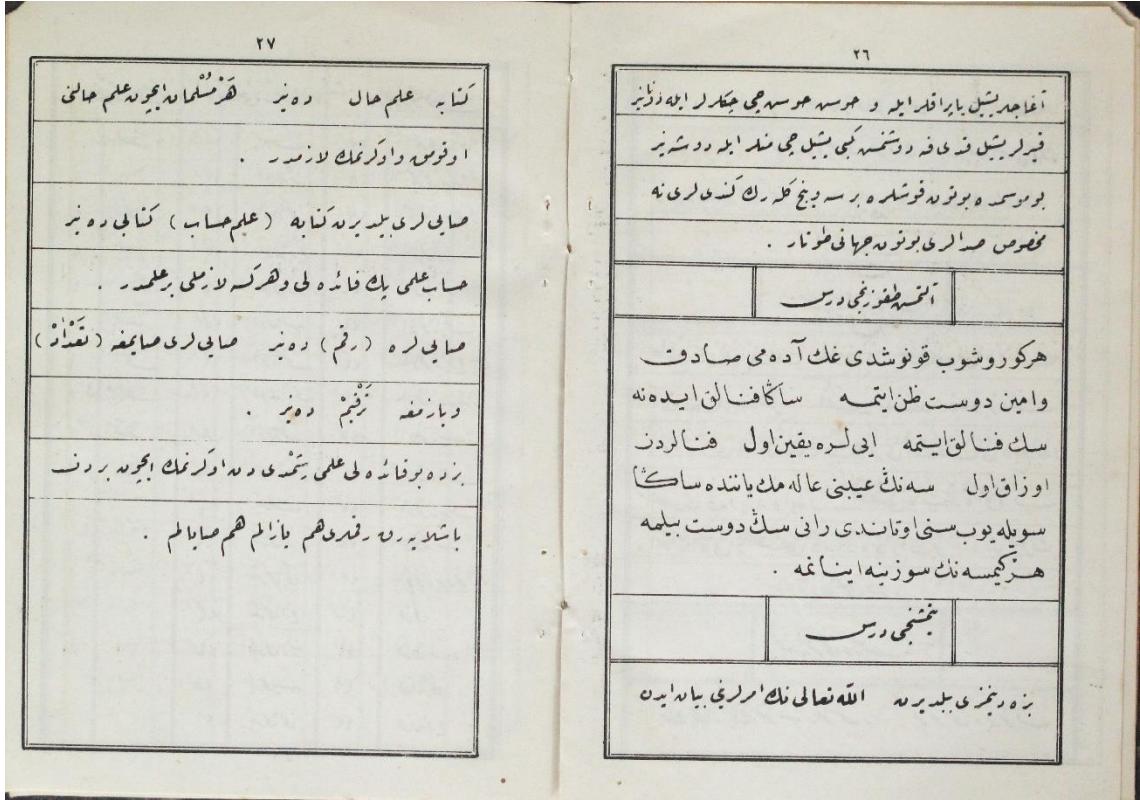 ٢٦
آغاجلر یشیل یاپراقلر ایله و خوش خوش چیچکلر ایله دوناینر
قیرلر یشیل قدیفه دوشنمش کبی یشیل چمنلر ایله دوشه نیر
بو موسمده بوتون قوشلره بر سه وینج کله رك کندی لری نه
مخصوص صدالری بوتون جهانی طوتار .
آلتمش طقوزنجی درس
هر کوروشوب قونوشدی غك آده می صادق
وامین دوست ظن ایتمه ساڭا فنالق ایده نه
سك فنالق ایتمه ایی لره یقین اول فنالردن
اوزاق اول سه نڭ عیبنی عاله مك یاننده ساڭا
سویله یوب سنی اوتاندی رانی سڭ دوست بیلمه
هر کیمسه نك سوزینه اینانمه .
یتمشنجی درس
بزه دینمزی بیلدیرن الله تعالی نك امرلرینی بیان ایدن
٢٧
کتابه علم حال ده نیر هَرْ مُسْلمان ایچون علم حالنی
اوقومق واوکرنمك لازمدر .
صایی لری بیلدیرن کتابه (علم حساب) کتابی ده نیر
حساب علمی پك فائده لی و هرکسه لازملی بر علمدر .
صایی لره (رقم) ده نیر صایی لری صایمغه (تَعْدَادْ)
ویازمغه تَرْقیمْ ده نیر .
بزده بو فائده لی علمی شیمدی دن اوکرنمك ایچون بردن
باشلایه رق رقملری هم یازالم هم صایالم .